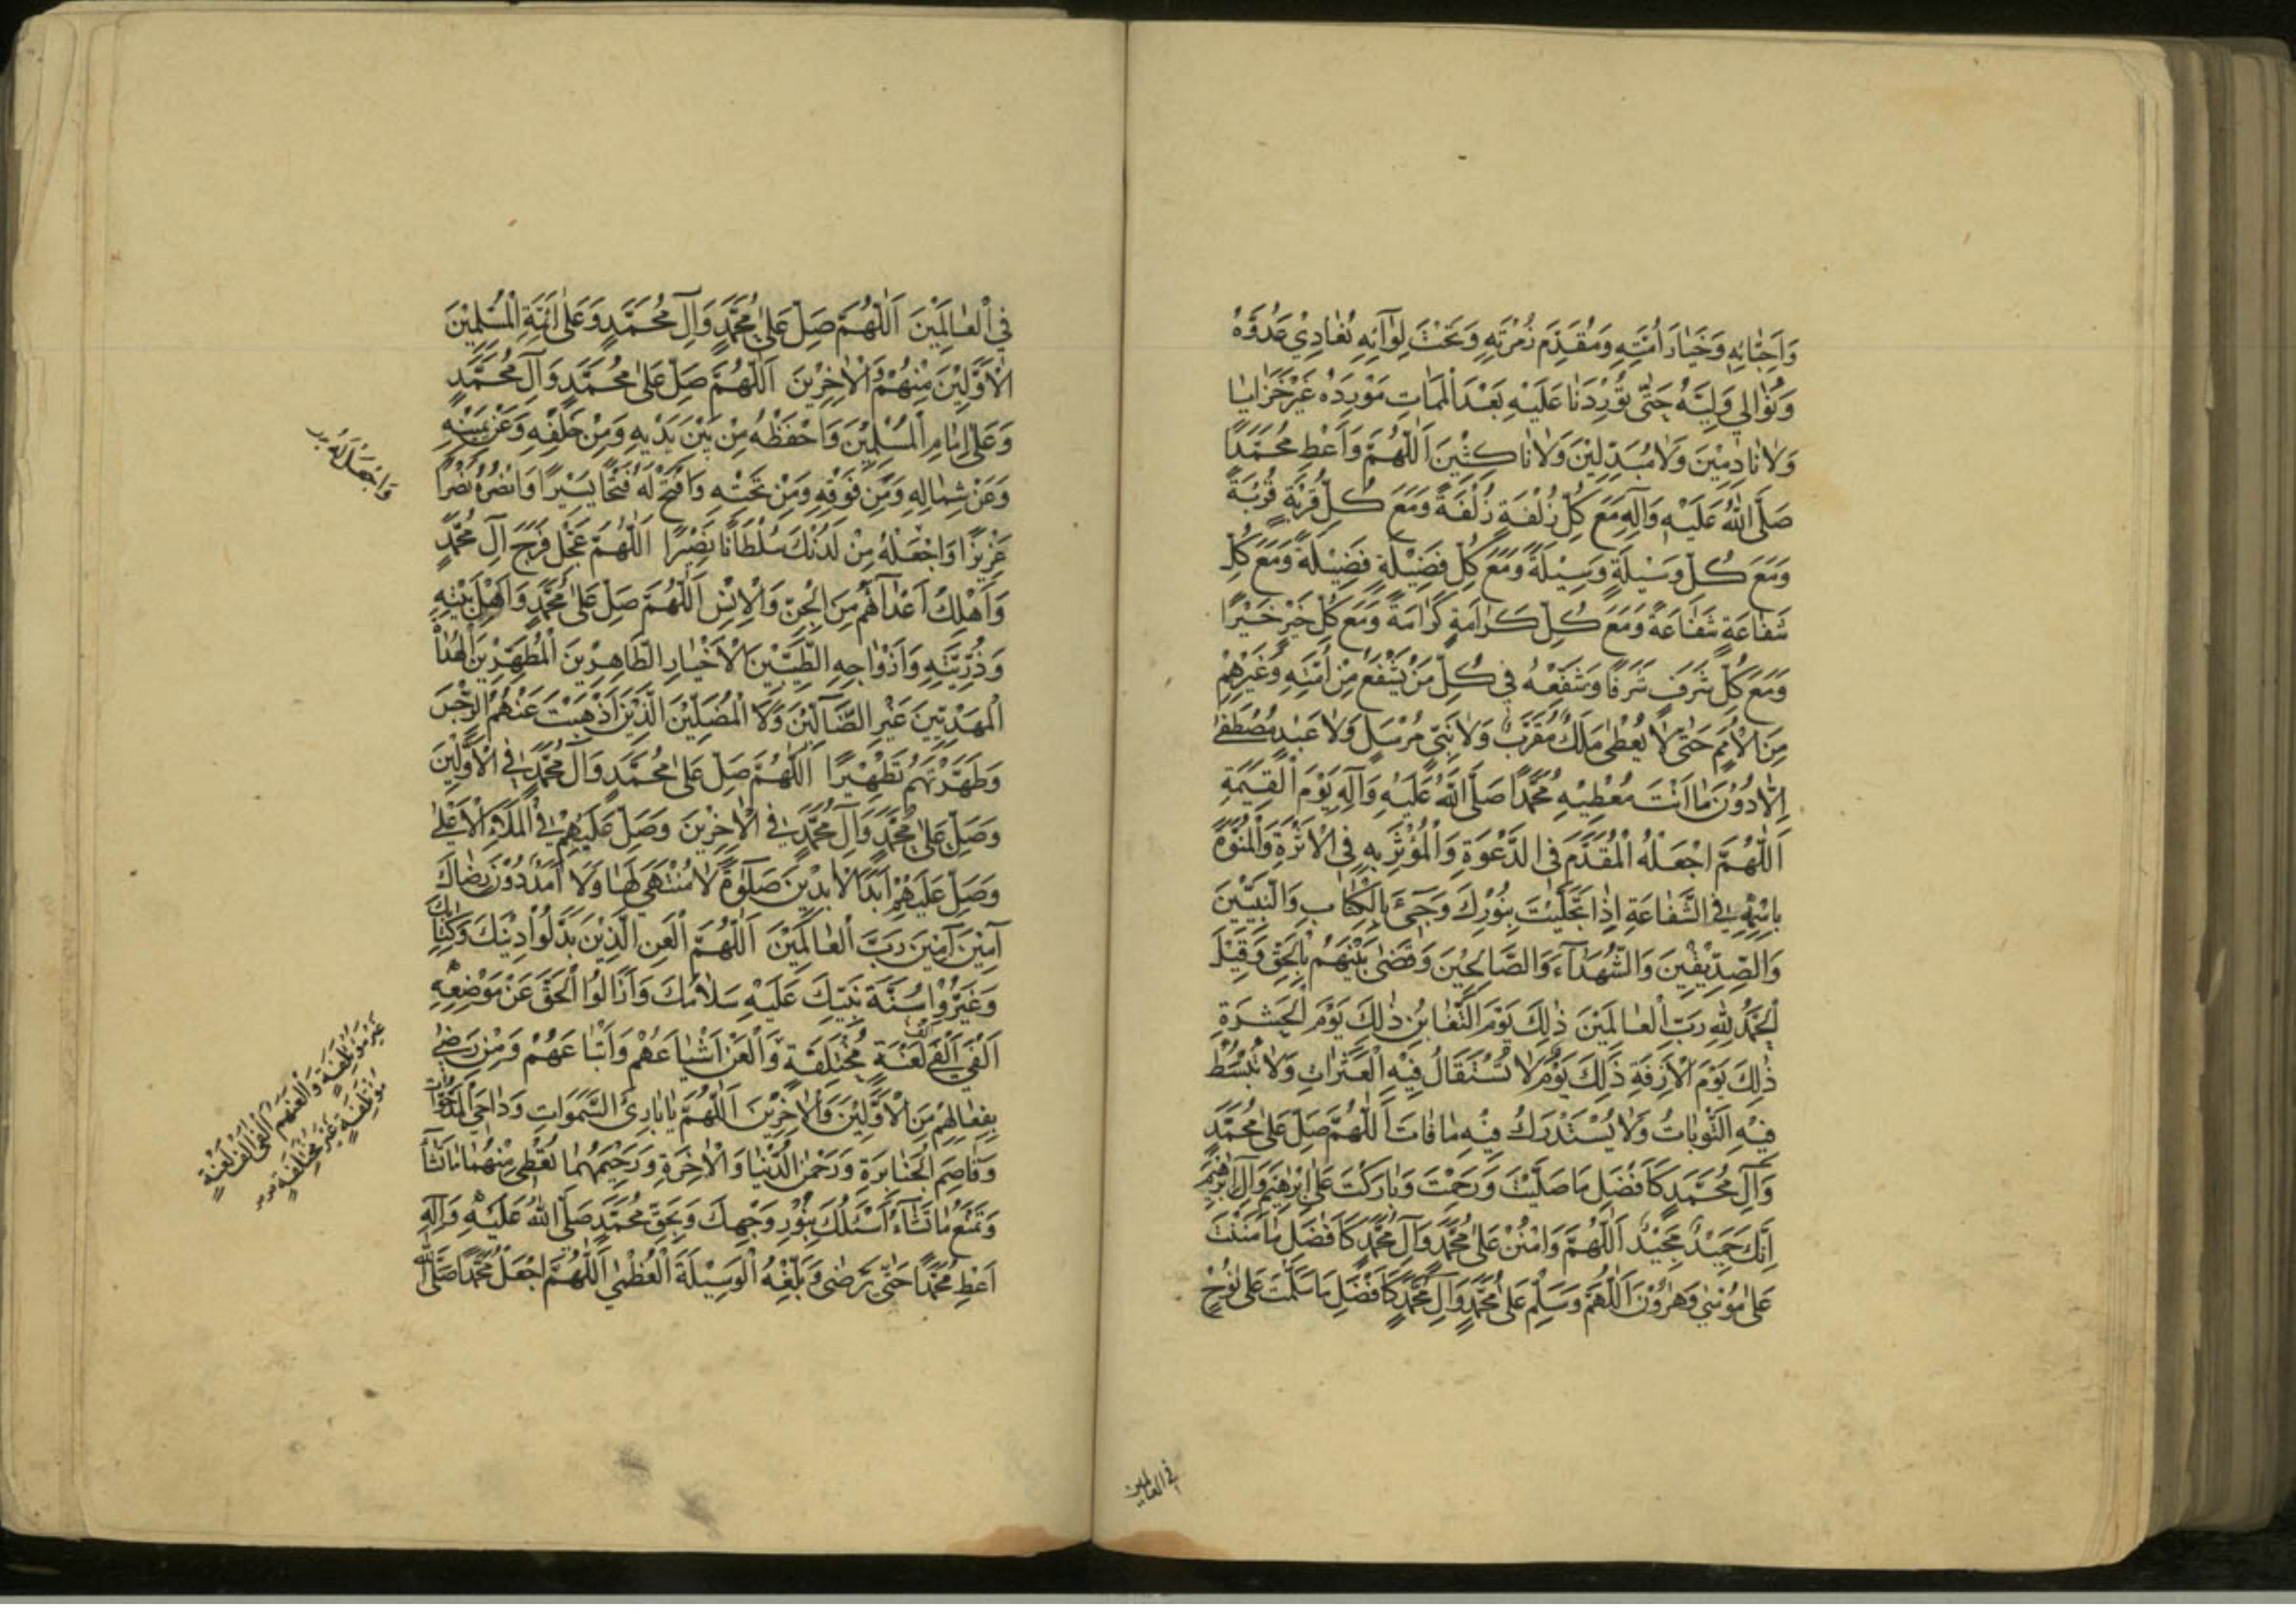 وَاَحِبّٰائِهِ وَخَيٰارَ اُمَّتِهِ وَمُقَدَّمَ زُمْرَتِهِ وَتَحْتَ لِوٰآئِهِ نُعٰادِيْ عَدُوَّهُ
وَنُوٰالِي وَلِيَّهُ حَتّٰى تُوْرِدَنٰا عَلَيْهِ بَعْدَ الْمَمٰاتِ مَوْرِدَهُ غَيْرَ خَزٰايٰا
وَلاٰ نٰادِمِيْنَ وَلاٰ مُبَدِّلِيْنَ وَلاٰ نٰاكِثِيْنَ اَللّٰهُمَّ وَاَعْطِ مُحَمَّدًا
صَلَّى اللّٰهُ عَلَيْهِ وَاٰلِهِ مَعَ كُلِّ زُلْفَةٍ زُلْفَةً وَمَعَ كُلِّ قُرْبَةٍ قُرْبَةً
وَمَعَ كُلِّ وَسِيْلَةٍ وَسِيْلَةً وَمَعَ كُلِّ فَضِيْلَةٍ فَضِيْلَةً وَمَعَ كُلِّ
شَفٰاعَةٍ شَفٰاعَةً وَمَعَ كُلِّ كَرٰامَةٍ كَرٰامَةً وَمَعَ كُلِّ خَيْرٍ خَيْرًا
وَمَعَ كُلِّ شَرَفٍ شَرَفًا وَشَفِّعْهُ فِي كُلِّ مَنْ يَشْفَعُ مِنْ اُمَّتِهِ وَغَيْرِهِمْ
مِنَ الْاُمَمِ حَتّٰى لاٰ يُعْطٰى مَلَكٌ مُقَرَّبٌ وَلاٰ نَبِيٌّ مُرْسَلٌ وَلاٰ عَبْدٌ مُصْطَفٰى
اِلّٰا دُوْنَ مٰا اَنْتَ مُعْطِيْهِ مُحَمَّدًا صَلَّى اللّٰهُ عَلَيْهِ وَآلِهِ يَوْمَ الْقِيٰمَةِ
اَللّٰهُمَّ اجْعَلْهُ الْمُقَدَّمَ فِي الدَّعْوَةِ وَالْمُؤْثَرَ بِهِ فِي الْاَثَرَةِ وَالْمُنَوَّهَ
بِاسْمِهِ فِي الشَّفٰاعَةِ اِذٰا تَجَلَّيْتَ بِنُوْرِكَ وَجِيْءَ بِالْكِتٰابِ وَالنَّبِيّٖنَ
وَالصِّدِّيْقِيْنَ وَالشُّهَدٰآءِ وَالصَّالِحِيْنَ وَقُضِيَ بَيْنَهُمْ بِالْحَقِّ وَقِيْلَ
الْحَمْدُ لِلّٰهِ رَبِّ الْعٰالَمِيْنَ ذٰلِكَ يَوْمُ التَّغٰابُنِ ذٰلِكَ يَوْمُ الْحَسْرَةِ
ذٰلِكَ يَوْمُ الْاٰزِفَةِ ذٰلِكَ يَوْمٌ لاٰ تُسْتَقٰالُ فِيْهِ الْعَثَرٰاتُ وَلاٰ تُبْسَطُ
فِيْهِ التَّوْبٰاتُ وَلاٰ يُسْتَدْرَكُ فِيْهِ مٰا فٰاتَ اَللّٰهُمَّ صَلِّ عَلٰى مُحَمَّدٍ
وَآلِ مُحَمَّدٍ كَاَفْضَلِ مٰا صَلَّيْتَ وَرَحِمْتَ وَبٰارَكْتَ عَلٰى اِبْرٰهِيْمَ وَآلِ اِبْرٰهِيْمَ
اِنَّكَ حَمِيْدٌ مَجِيْدٌ اَللّٰهُمَّ وَامْنُنْ عَلٰى مُحَمَّدٍ وَآلِ مُحَمَّدٍ كَاَفْضَلِ مٰا مَنَنْتَ
عَلٰى مُوْسٰى وَهٰرُوْنَ اَللّٰهُمَّ وَسَلِّمْ عَلٰى مُحَمَّدٍ وَآلِ مُحَمَّدٍ كَاَفْضَلِ مٰا سَلَّمْتَ عَلٰى نُوْحٍ
في العالمين
فِي الْعٰالَمِيْنَ اَللّٰهُمَّ صَلِّ عَلٰى مُحَمَّدٍ وَآلِ مُحَمَّدٍ وَعَلٰى اَئِمَّةِ الْمُسْلِمِيْنَ
الْاَوَّلِيْنَ مِنْهُمْ وَالْاٰخِرِيْنَ اَللّٰهُمَّ صَلِّ عَلٰى مُحَمَّدٍ وَآلِ مُحَمَّدٍ
وَعَلٰى اِمٰامِ الْمُسْلِمِيْنَ وَاحْفَظْهُ مِنْ بَيْنِ يَدَيْهِ وَمِنْ خَلْفِهِ وَعَنْ يَمِيْنِهِ
وَعَنْ شِمٰالِهِ وَمِنْ فَوْقِهِ وَمِنْ تَحْتِهِ وَافْتَحْ لَهُ فَتْحًا يَسِيْرًا وَانْصُرْهُ نَصْرًا
وَاجْعَلْ لَهُ
عَزِيْزًا وَاجْعَلْهُ مِنْ لَدُنْكَ سُلْطٰانًا نَصِيْرًا اَللّٰهُمَّ عَجِّلْ فَرَجَ آلِ مُحَمَّدٍ
وَاَهْلِكْ اَعْدٰآئَهُمْ مِنَ الْجِنِّ وَالْاِنْسِ اَللّٰهُمَّ صَلِّ عَلٰى مُحَمَّدٍ وَاَهْلِ بَيْتِهِ
وَذُرِّيَّتِهِ وَاَزْوٰاجِهِ الطَّيِّبِيْنَ الْاَخْيٰارِ الطّٰاهِرِيْنَ الْمُطَهَّرِيْنَ الْهُدٰاةِ
الْمَهْدِيِّيْنَ غَيْرِ الضّٰآلِّيْنَ وَلَا الْمُضِلِّيْنَ الَّذِيْنَ اَذْهَبْتَ عَنْهُمُ الرِّجْسَ
وَطَهَّرْتَهُمْ تَطْهِيْرًا اَللّٰهُمَّ صَلِّ عَلٰى مُحَمَّدٍ وَآلِ مُحَمَّدٍ فِي الْاَوَّلِيْنَ
وَصَلِّ عَلٰى مُحَمَّدٍ وَآلِ مُحَمَّدٍ فِي الْاٰخِرِيْنَ وَصَلِّ عَلَيْهِمْ فِي الْمَلَاءِ الْاَعْلٰى
وَصَلِّ عَلَيْهِمْ اَبَدَ الْاٰبِدِيْنَ صَلٰوةً لاٰ مُنْتَهٰى لَهٰا وَلاٰ اَمَدَ دُوْنَ رِضٰاكَ
آمِيْنَ آمِيْنَ رَبَّ الْعٰالَمِيْنَ اَللّٰهُمَّ الْعَنِ الَّذِيْنَ بَدَّلُوْا دِيْنَكَ وَكِتٰابَكَ
وَغَيَّرُوْا سُنَّةَ نَبِيِّكَ عَلَيْهِ سَلاٰمُكَ وَاَزٰالُوا الْحَقَّ عَنْ مَوْضِعِهِ
اَلْفَيْ اَلْفِ لَعْنَةٍ مُخْتَلِفَةٍ وَالْعَنْ اَشْيٰاعَهُمْ وَاَتْبٰاعَهُمْ وَمَنْ رَضِيَ
غَيْرَ مُؤْتَلِفَةٍ وَالْعَنْهُمْ اَلْفَيْ اَلْفِ لَعْنَةٍ
مُؤْتَلِفَةٍ غَيْرَ مُخْتَلِفَةٍ
بِفِعٰالِهِمْ مِنَ الْاَوَّلِيْنَ وَالْاٰخِرِيْنَ اَللّٰهُمَّ يٰا بٰارِئَ السَّمٰوٰاتِ وَدٰاحِيَ الْمَدْحُوّٰاتِ
وَقٰاصِمَ الْجَبٰابِرَةِ وَرَحْمٰنَ الدُّنْيٰا وَالْاٰخِرَةِ وَرَحِيْمَهُمٰا تُعْطِي مِنْهُمٰا مٰا تَشٰآءُ
وَتَمْنَعُ مٰا تَشٰآءُ اَسْئَلُكَ بِنُوْرِ وَجْهِكَ وَبِحَقِّ مُحَمَّدٍ صَلَّى اللّٰهُ عَلَيْهِ وَآلِهِ
اَعْطِ مُحَمَّدًا حَتّٰى يَرْضٰى وَبَلِّغْهُ الْوَسِيْلَةَ الْعُظْمٰى اَللّٰهُمَّ اجْعَلْ مُحَمَّدًا صَلَّى اللّٰهُ